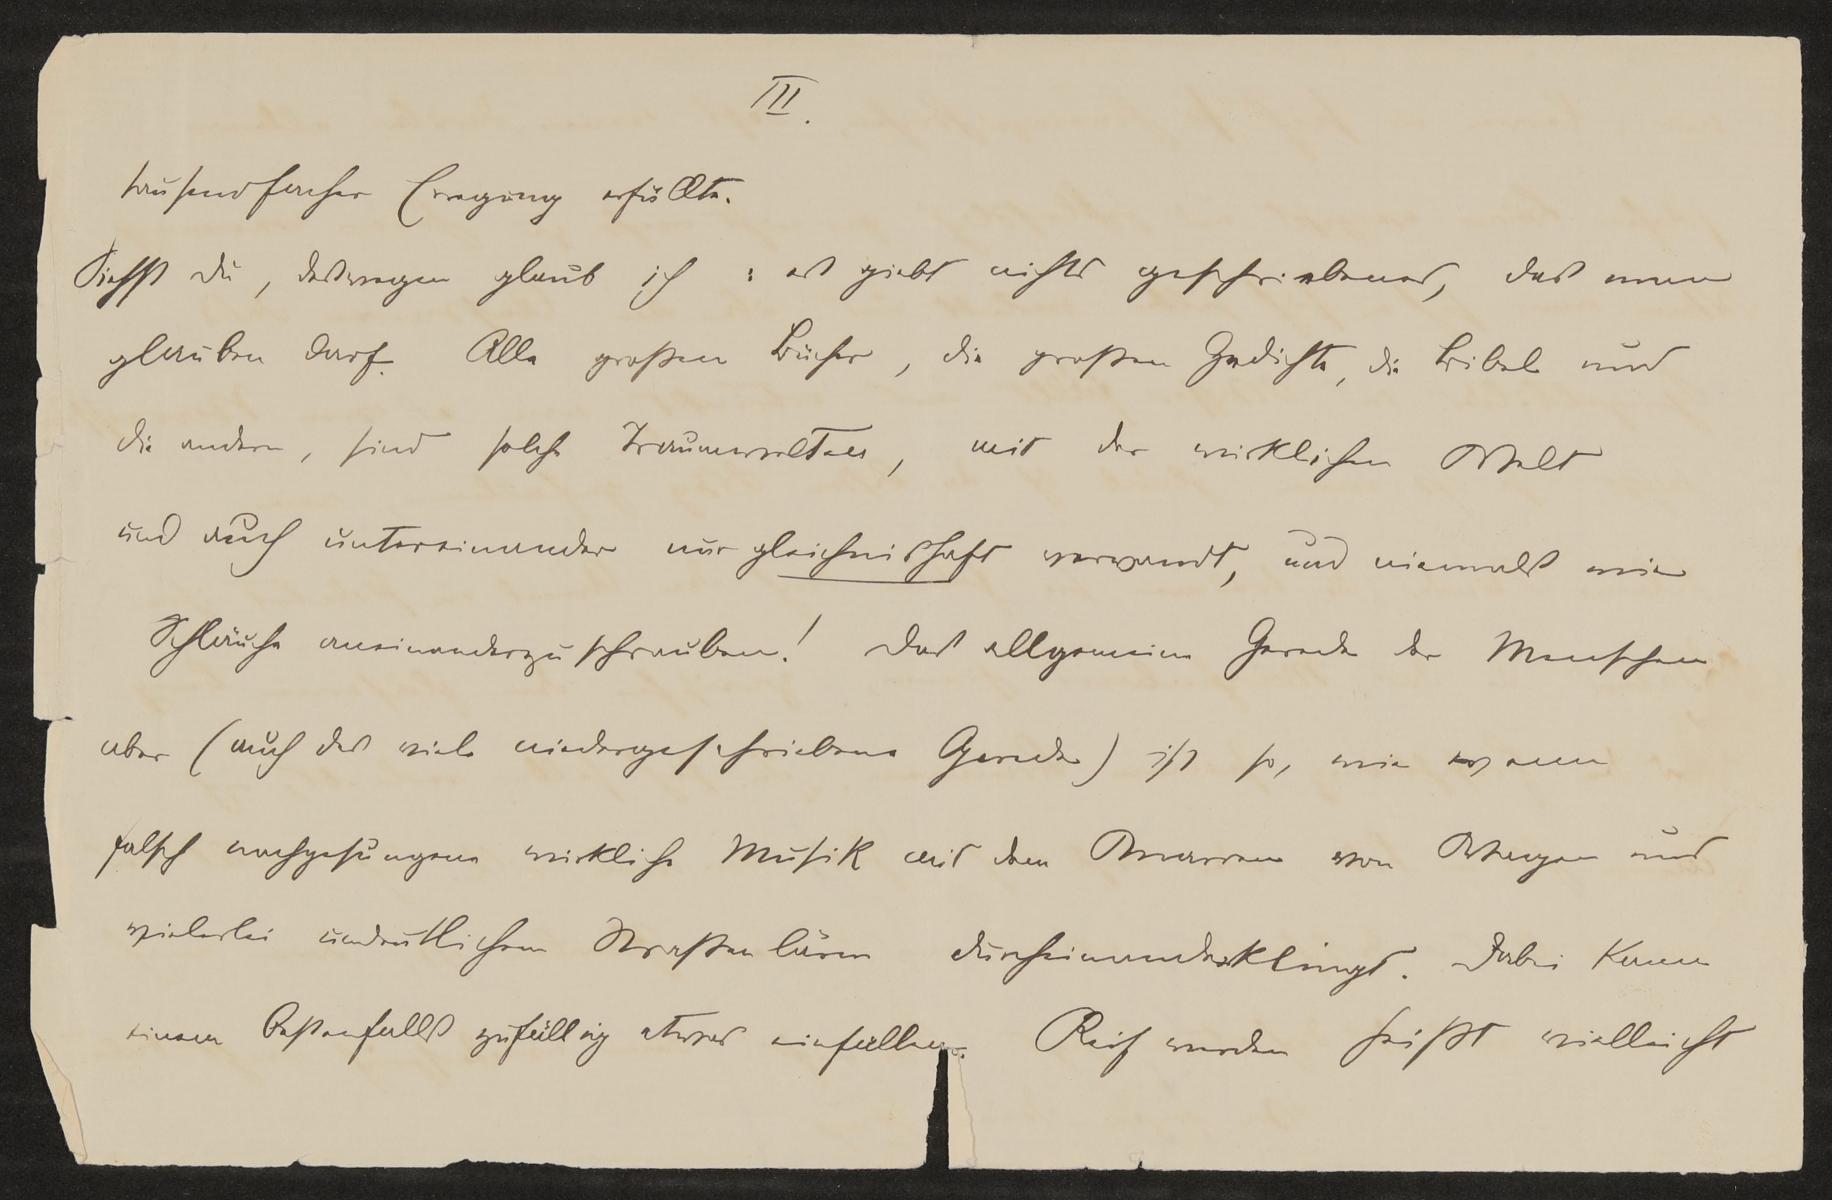 III.
tausendfacher Erregung erfüllte.
Siehst du, deswegen glaub ich: es giebt nichts geschriebenes, das man
glauben darf. Alle großen Bücher, die großen Gedichte, die Bibel und
die andern, sind solche Traumwelten, mit der wirklichen Welt
und auch untereinander nur gleichnishaft verwandt, und niemals wie
Schläuche aneinanderzuschrauben! Das allgemeine Gerede der Menschen
aber (auch das viele niedergeschriebene Gerede) ist so, wie wenn
falsch nachgesungene wirkliche Musik mit dem Knarren von Wagen und
vielerlei undeutlichem Straßenlärm durcheinanderklingt. Dabei kann
einem bestenfalls zufällig etwas einfallen. Reif werden heißt vielleicht